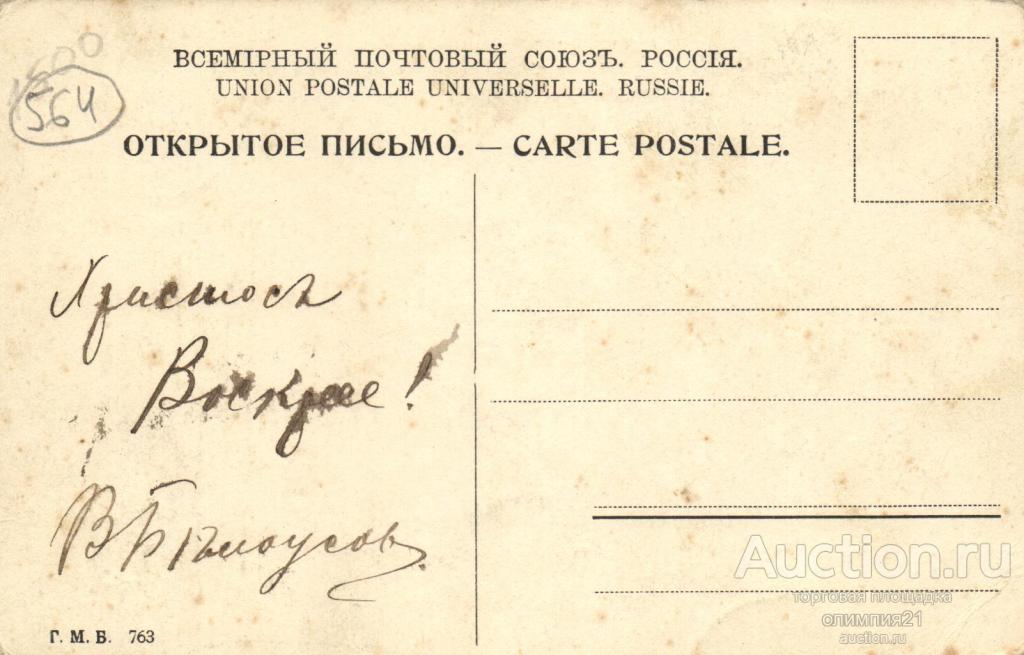 1500
564
ВСЕМІРНЫЙ ПОЧТОВЫЙ СОЮЗЪ. РОССІЯ.
UNION POSTALE UNIVERSELLE. RUSSIE.
ОТКРЫТОЕ ПИСЬМО. — CARTE POSTALE.
Христосъ
Воскресе!
В Бѣлоусовъ.
Г. М. Б. 763
Auction.ru
торговая площадка
олимпия21
auction.ru